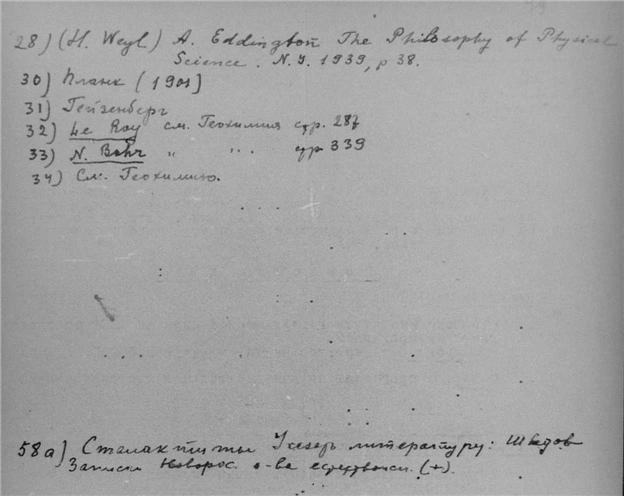 28) (H. Weyl) A. Eddington The Philosophy of Physical
Science. N.Y. 1939, p 38.
30) Планк (1901)
31) Гейзенберг
32) Le Roy см. Геохимия стр. 287
33) N. Bohr " " " стр 339
34) См. Геохимию.
58а) Сталактиты Указать литературу: Шведов
Записки Новорос. о-ва естествоисп. (+).